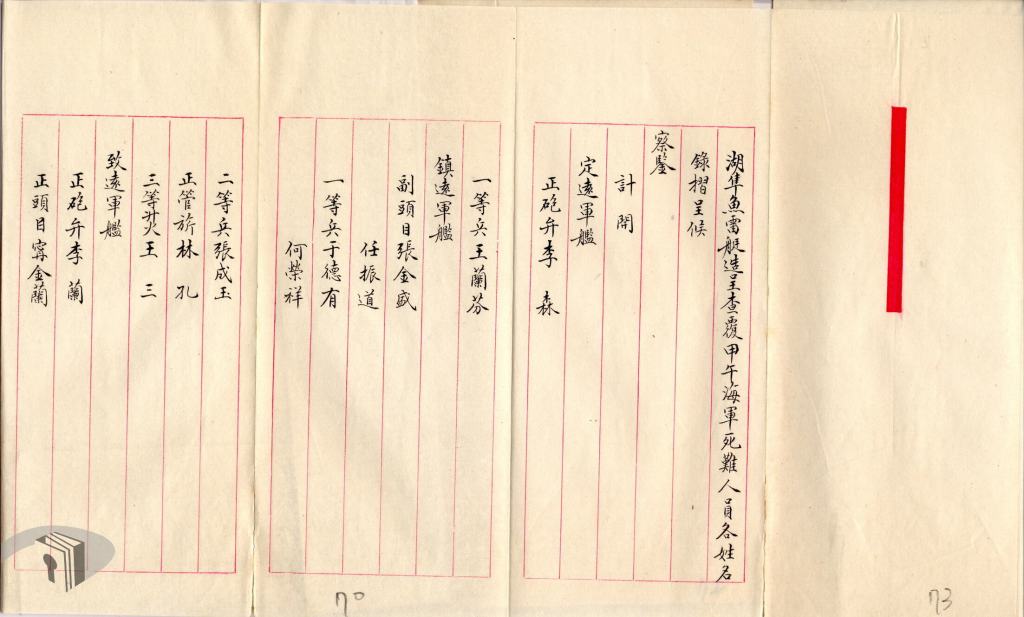 湖隼魚雷艇造呈查覆甲午海軍死難人員各姓名
錄摺呈候
察鑒
計開
定遠軍艦
正砲弁李 森
一等兵王蘭芬
鎮遠軍艦
副頭目張金盛
任振道
一等兵于德有
何榮祥
二等兵張成玉
正管旂林 孔
三等 王 三
致遠軍艦
正砲弁李 蘭
正頭目甯金蘭
70
73